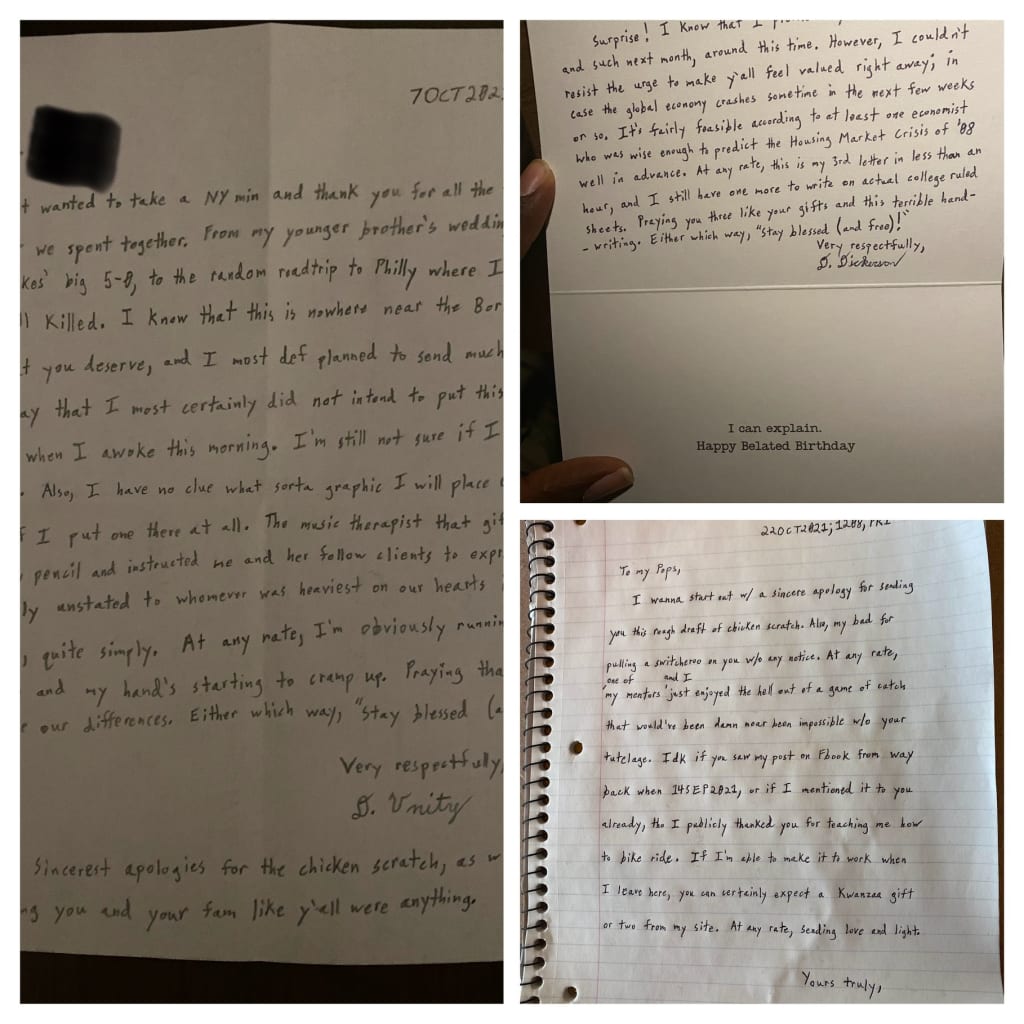 7OCT202
wanted to take a NY min and thank you for all the
we spent together. From my younger brother's weddin
kes' big 5-0, to the random roadtrip to Philly where I
ll Killed. I know that this is nowhere near the Bor
t you deserve, and I most def planned to send much
ay that I most certainly did not intend to put this
when I awoke this morning. I'm still not sure if I
. Also, I have no clue what sorta graphic I will place
I put one there at all. The music therapist that gif
pencil and instructed me and her fellow clients to expr
ly unstated to whomever was heaviest on our hearts
, quite simply. At any rate, I'm obviously runnin
and my hand's starting to cramp up. Praying tha
our differences. Either which way, "Stay blessed (a
Very respectfully,
D. Unity
Sincerest apologies for the chicken scratch, as w
ng you and your fam like y'all were anything.
Surprise! I know that I
and such next month, around this time. However, I couldn't
resist the urge to make y'all feel valued right away; in
case the global economy crashes sometime in the next few weeks
or so. It's fairly feasible according to at least one economist
who was wise enough to predict the Housing Market Crisis of '08
well in advance. At any rate, this is my 3rd letter in less than an
hour, and I still have one more to write on actual college ruled
sheets. Praying you three like your gifts and this terrible hand-
-writing. Either which way, "Stay blessed (and free)!"
Very respectfully,
D. Dickerson
I can explain.
Happy Belated Birthday
22OCT2021; 1208, FRI
To my Pops,
I wanna start out w/ a sincere apology for sending
you this rough draft of chicken scratch. Also, my bad for
pulling a switcheroo on you w/o any notice. At any rate,
one of and I
my mentors just enjoyed the hell out of a game of catch
that would've been damn near been impossible w/o your
tutelage. Idk if you saw my post on Fbook from way
back when 14SEP2021, or if I mentioned it to you
already, tho I publicly thanked you for teaching me how
to bike ride. If I'm able to make it to work when
I leave here, you can certainly expect a Kwanzaa gift
or two from my site. At any rate, sending love and light.
Yours truly,